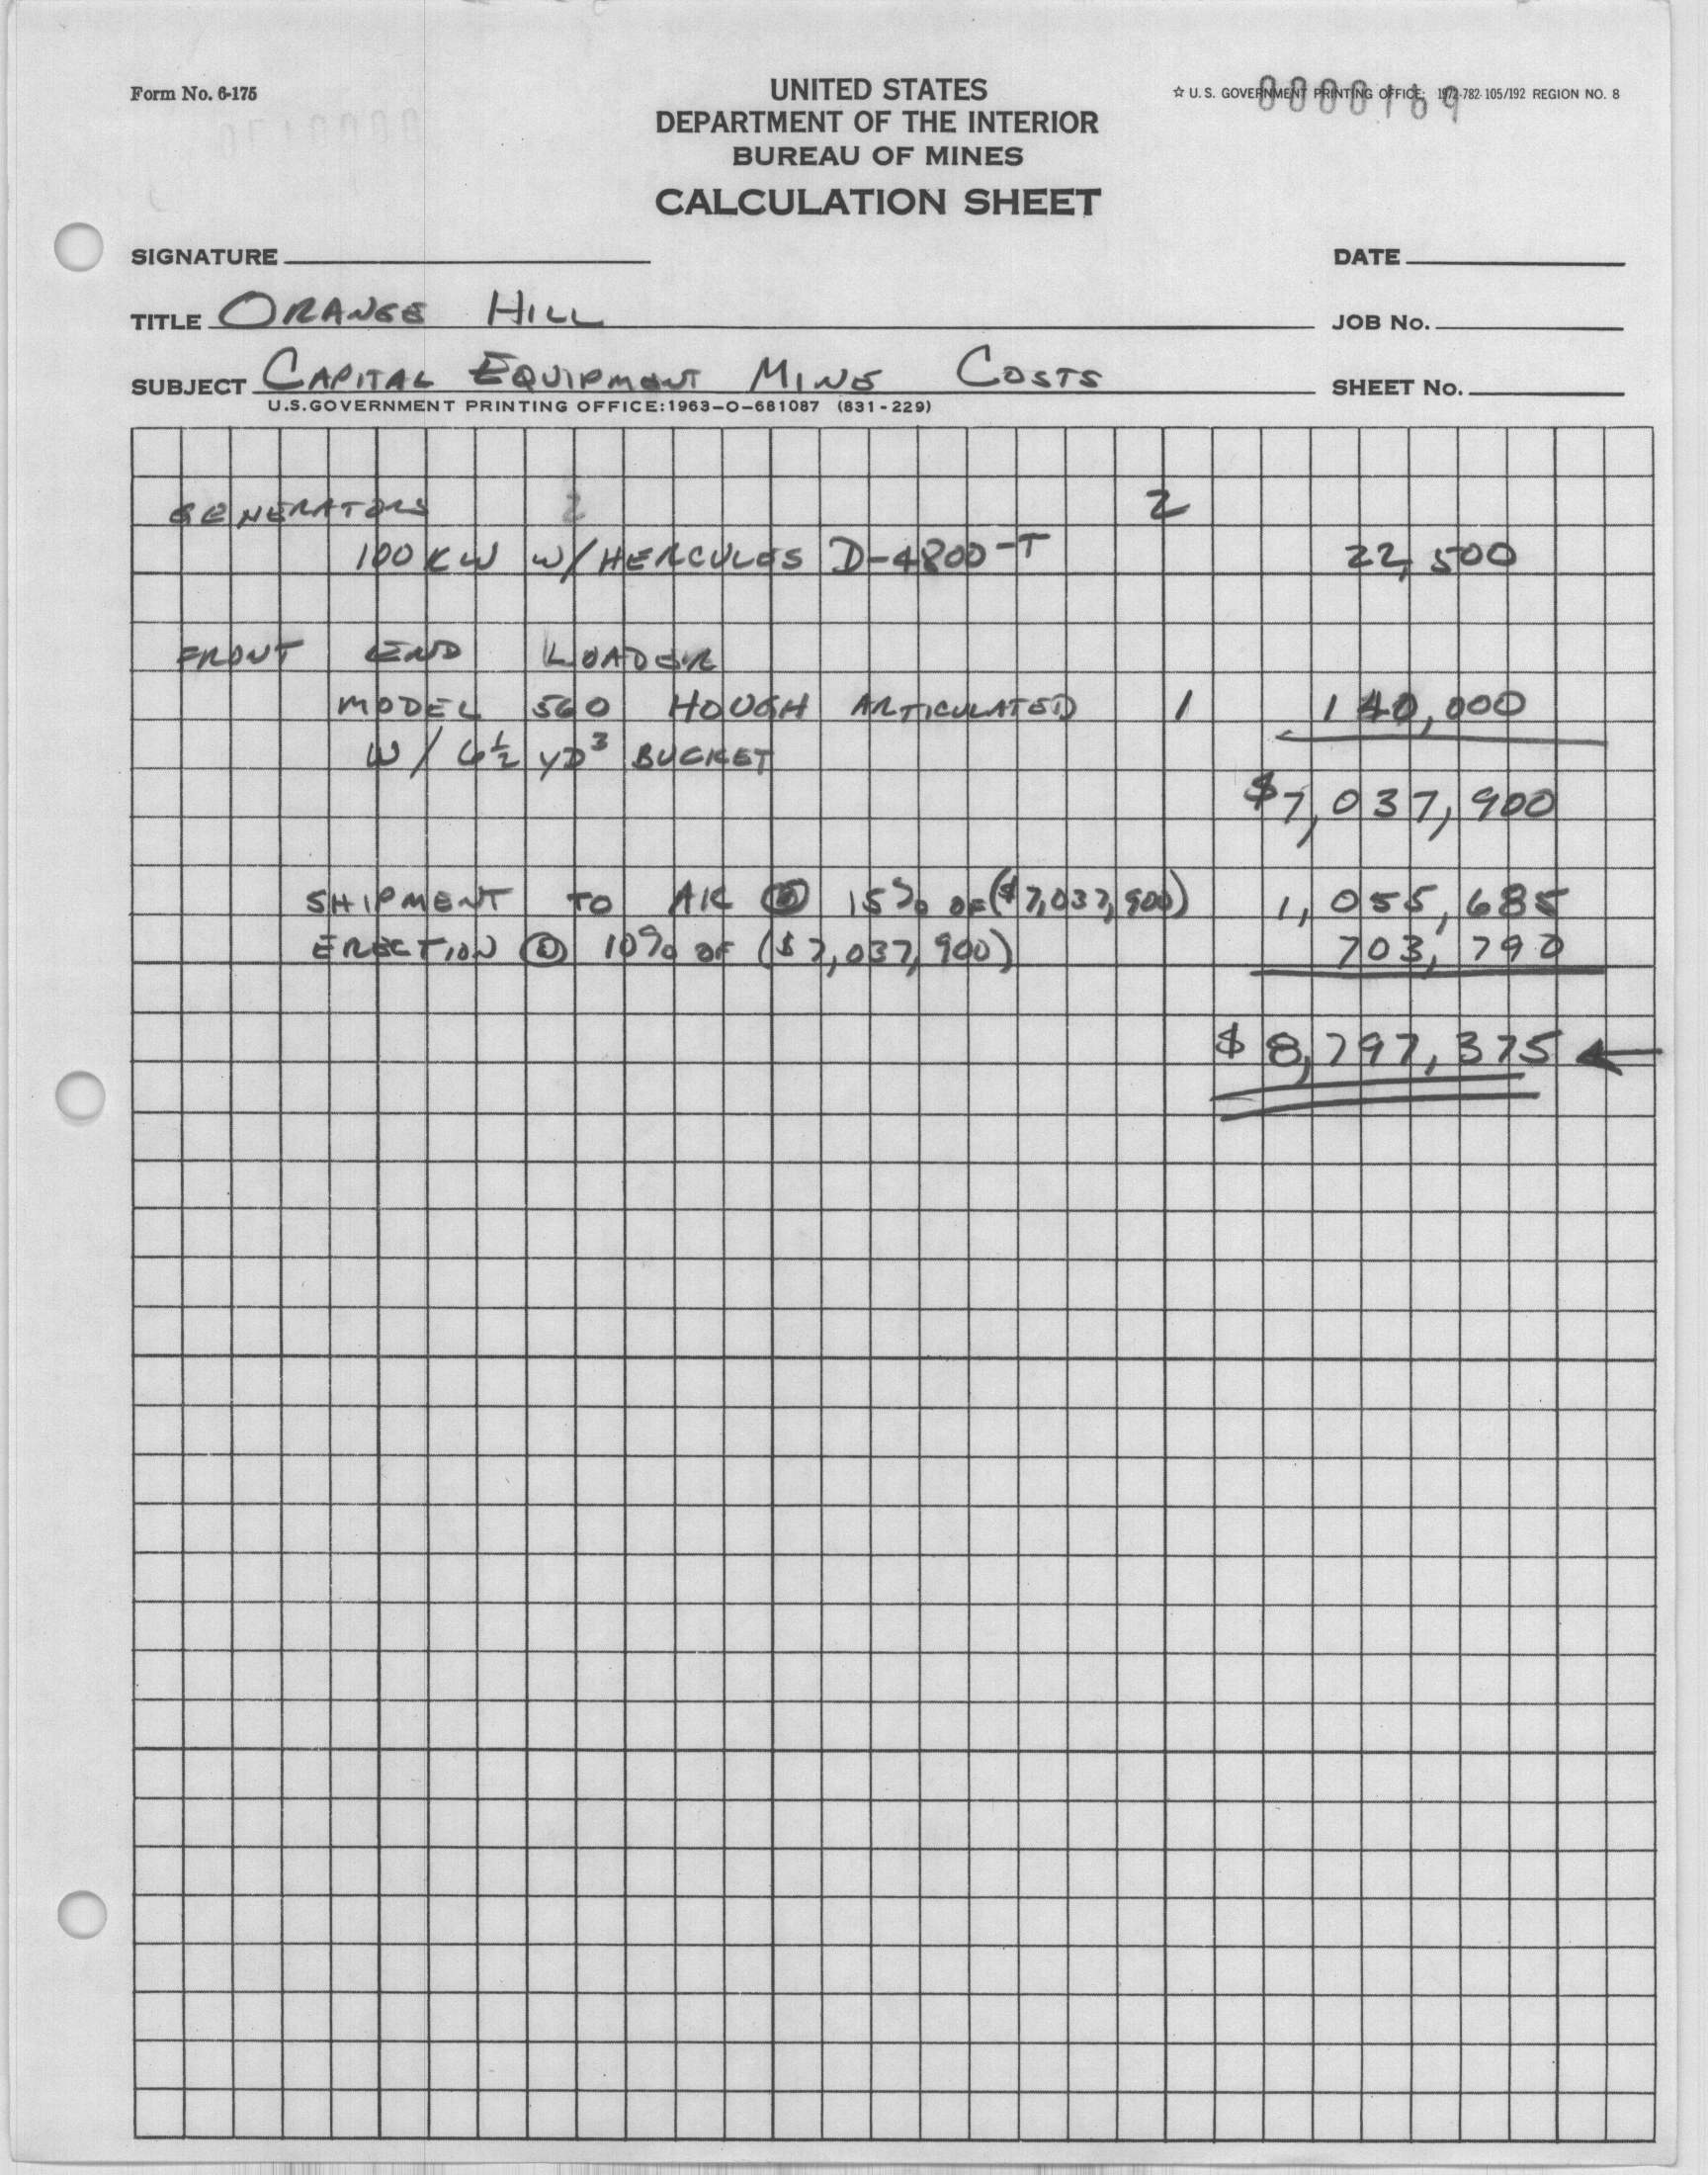 Form No. 6-175
UNITED STATES
DEPARTMENT OF THE INTERIOR
BUREAU OF MINES
CALCULATION SHEET
☆ U. S. GOVERNMENT PRINTING OFFICE: 1972-782-105/192 REGION NO. 8
0000169
0000170
SIGNATURE
DATE
TITLE ORANGE HILL
JOB No.
SUBJECT CAPITAL EQUIPMENT MINE COSTS
SHEET No.
U.S.GOVERNMENT PRINTING OFFICE:1963-O-681087 (831-229)
GENERATORS 2 2
100 KW W/HERCULES D-4800-T 22,500
FRONT END LOADER
MODEL 560 HOUGH ARTICULATED 1 140,000
W/ 6½ YD³ BUCKET
$7,037,900
SHIPMENT TO AK @ 15% OF ($7,037,900) 1,055,685
ERECTION @ 10% OF ($7,037,900) 703,790
$8,797,375 ←